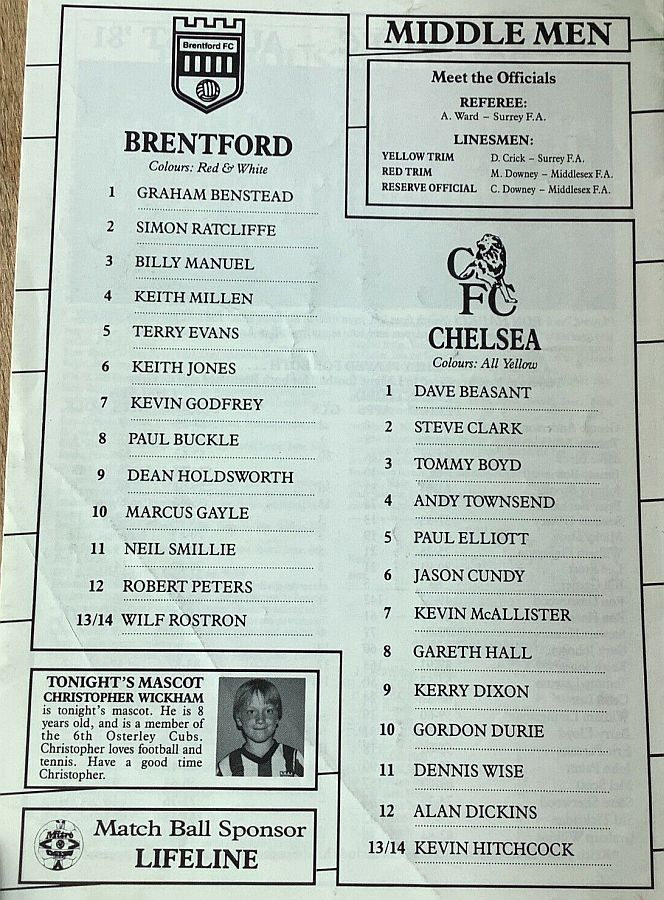 Brentford FC
BRENTFORD
Colours: Red & White
1 GRAHAM BENSTEAD
2 SIMON RATCLIFFE
3 BILLY MANUEL
4 KEITH MILLEN
5 TERRY EVANS
6 KEITH JONES
7 KEVIN GODFREY
8 PAUL BUCKLE
9 DEAN HOLDSWORTH
10 MARCUS GAYLE
11 NEIL SMILLIE
12 ROBERT PETERS
13/14 WILF ROSTRON
TONIGHT'S MASCOT
CHRISTOPHER WICKHAM
is tonight's mascot. He is 8
years old, and is a member of
the 6th Osterley Cubs.
Christopher loves football and
tennis. Have a good time
Christopher.
Mitre
Match Ball Sponsor
LIFELINE
MIDDLE MEN
Meet the Officials
REFEREE:
A. Ward – Surrey F.A.
LINESMEN:
YELLOW TRIM D. Crick – Surrey F.A.
RED TRIM M. Downey – Middlesex F.A.
RESERVE OFFICIAL C. Downey – Middlesex F.A.
C
FC
CHELSEA
Colours: All Yellow
1 DAVE BEASANT
2 STEVE CLARK
3 TOMMY BOYD
4 ANDY TOWNSEND
5 PAUL ELLIOTT
6 JASON CUNDY
7 KEVIN McALLISTER
8 GARETH HALL
9 KERRY DIXON
10 GORDON DURIE
11 DENNIS WISE
12 ALAN DICKINS
13/14 KEVIN HITCHCOCK